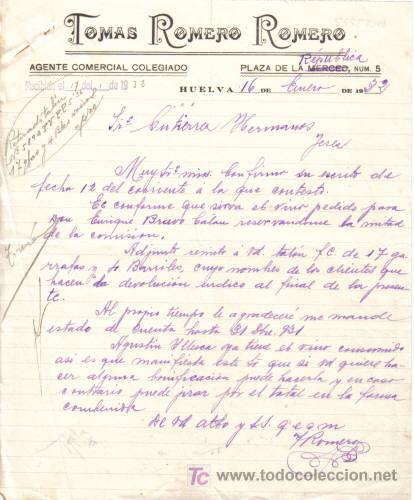 TOMAS ROMERO ROMERO
AGENTE COMERCIAL COLEGIADO
PLAZA DE LA MERCED, NUM. 5
República
Recibido el 17 de 1 de 1932
HUELVA 16 DE Enero DE 1932
Srs Gutierrez Hermanos
Jerez
Muy Srs mios. Confirmo su escrito de
fecha 12 del corriente a la que contesto.
Es conforme que sirva el vino pedido para
Don Enrique Bravo reservandome la mitad
de la comision.
Adjunto remito a Vd. talón f.c. de 17 ga-
rrafas y Barriles, cuyo nombres de los clientes que
hacen la devolución indico al final de la presen-
te.
Al propio tiempo le agradeceré me mande
estado de Cuenta hasta 31 Dbre 931
Agustin Ulloca ya tiene el vino consumido
asi es que manifiesta este to que si Vd quiere ha-
cer alguna bonificación puede hacerla y en caso
contrario puede jirar por el total en la forma
combenida
De Vd atto y S.S. q e s m
T Romero
TC PROHIBIDA LA REPRODUCCIÓN todocoleccion.net